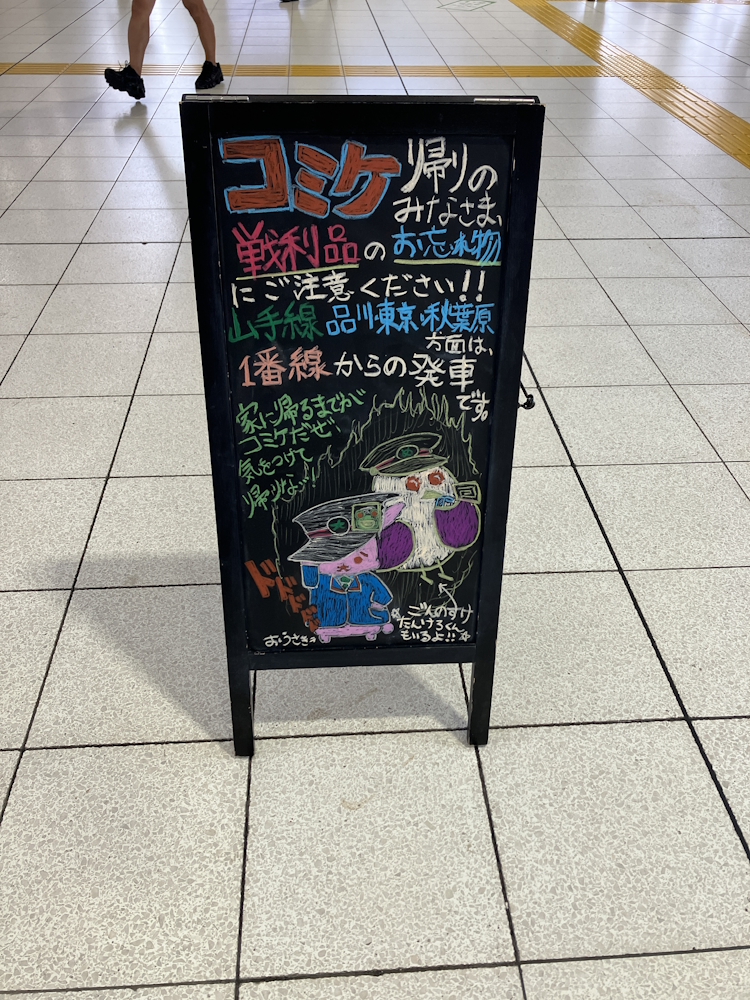 コミケ帰りの
みなさま、
戦利品のお忘れ物
にご注意ください!!
山手線 品川・東京・秋葉原
方面は、
1番線からの発車
です。
家に帰るまでが
コミケだぜ
気をつけて
帰りな!
ドドドド
おうさき
ごんのすけ
たんけろくん
もいるよ!!